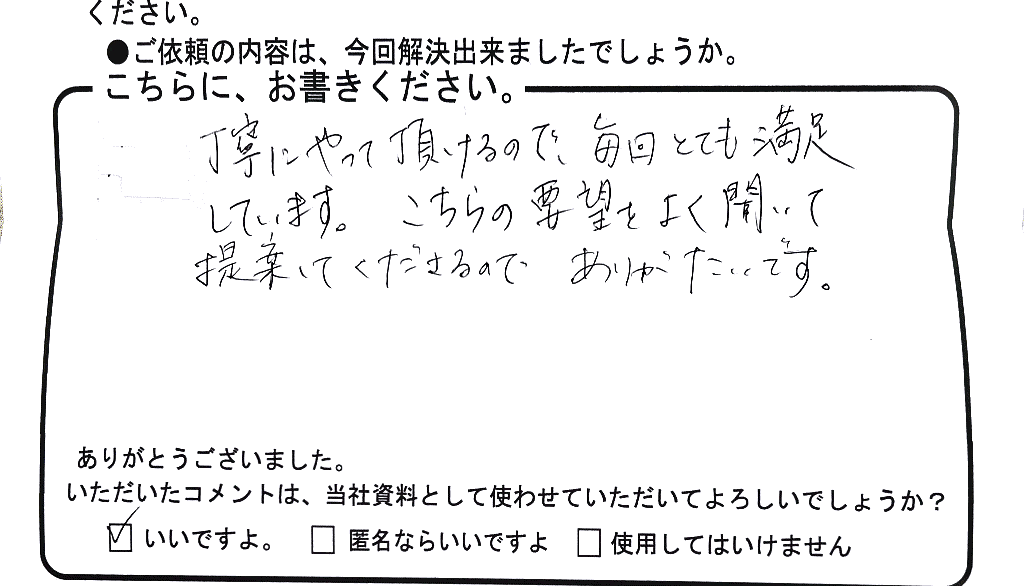 ください。
●ご依頼の内容は、今回解決出来ましたでしょうか。
こちらに、お書きください。
丁寧にやって頂けるので、毎回とても満足
しています。こちらの要望をよく聞いて
提案してくださるので ありがたいです。
ありがとうございました。
いただいたコメントは、当社資料として使わせていただいてよろしいでしょうか？
☑ いいですよ。 □ 匿名ならいいですよ □ 使用してはいけません